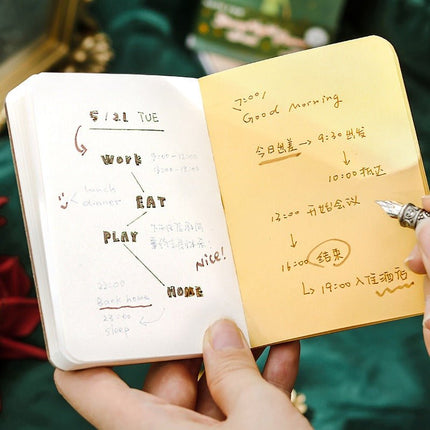 5/21 TUE
Work
9:00-12:00
lunch
dinner
EAT
PLAY
Nice!
HOME
22:00
Back home
23:00
sleep
7:00/
Good morning
今日出差→9:30出发
↓
10:00抵达
13:00 开始会议
↓
16:00 结束
↳19:00入住酒店